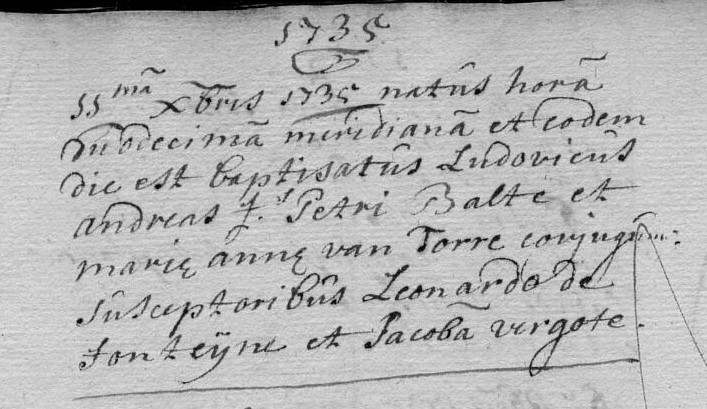 1735
11mâ Xbris 1735 natûs horâ
duodecimâ meridianâ et eodem
die est baptisatûs Ludovicûs
andreas f.s Petri Balte et
marię annę van Torre conjugum:
sûsceptoribûs Leonardo de
fonteijne et Jacobâ vergote.